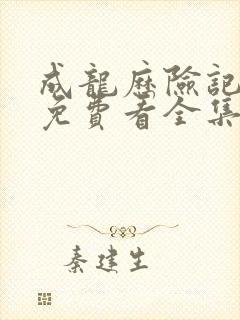 成龍歷險記
免費看全集
秦建生